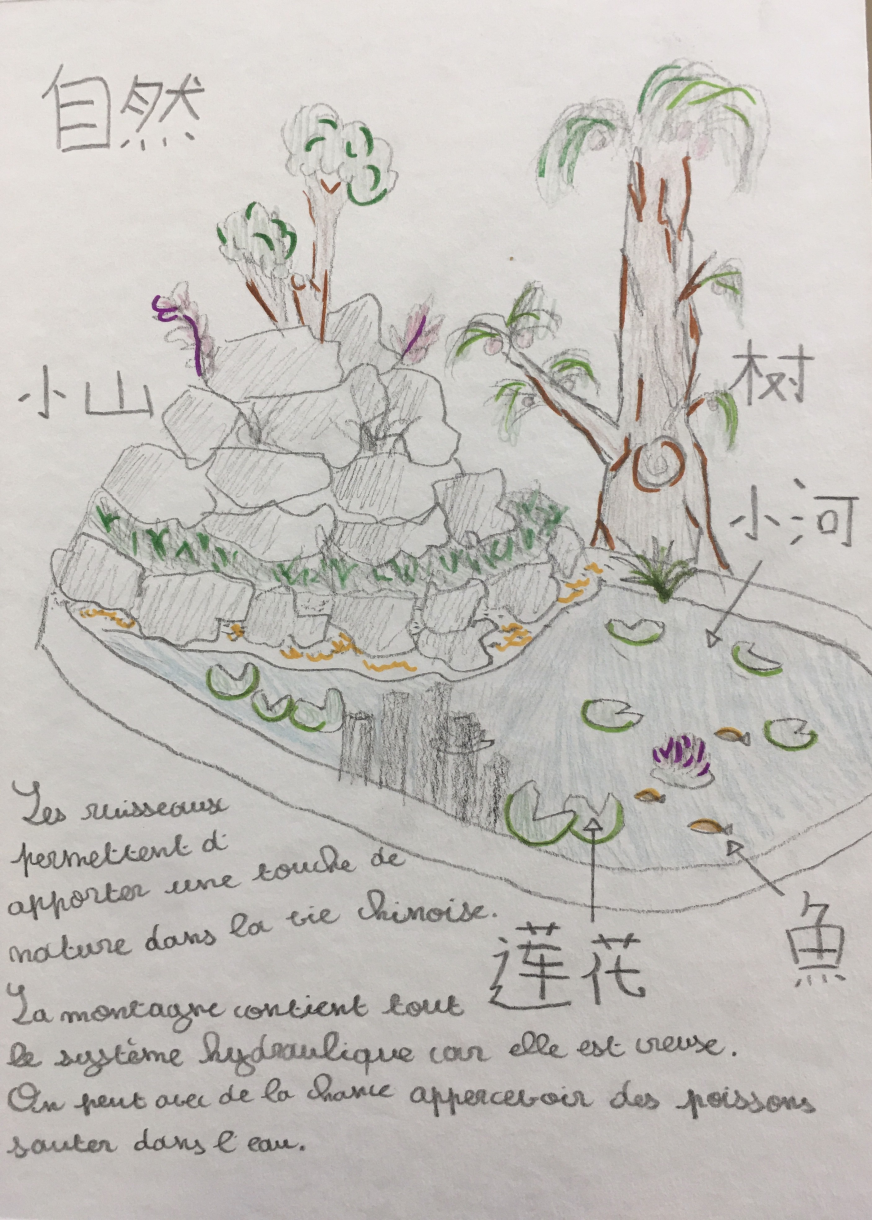 自然
小山
树
小河
Les ruisseaux
permettent d'
apporter une touche de
nature dans la vie chinoise.
莲花
魚
La montagne contient tout
le système hydraulique car elle est creuse.
On peut avec de la chance appercevoir des poissons
sauter dans l'eau.